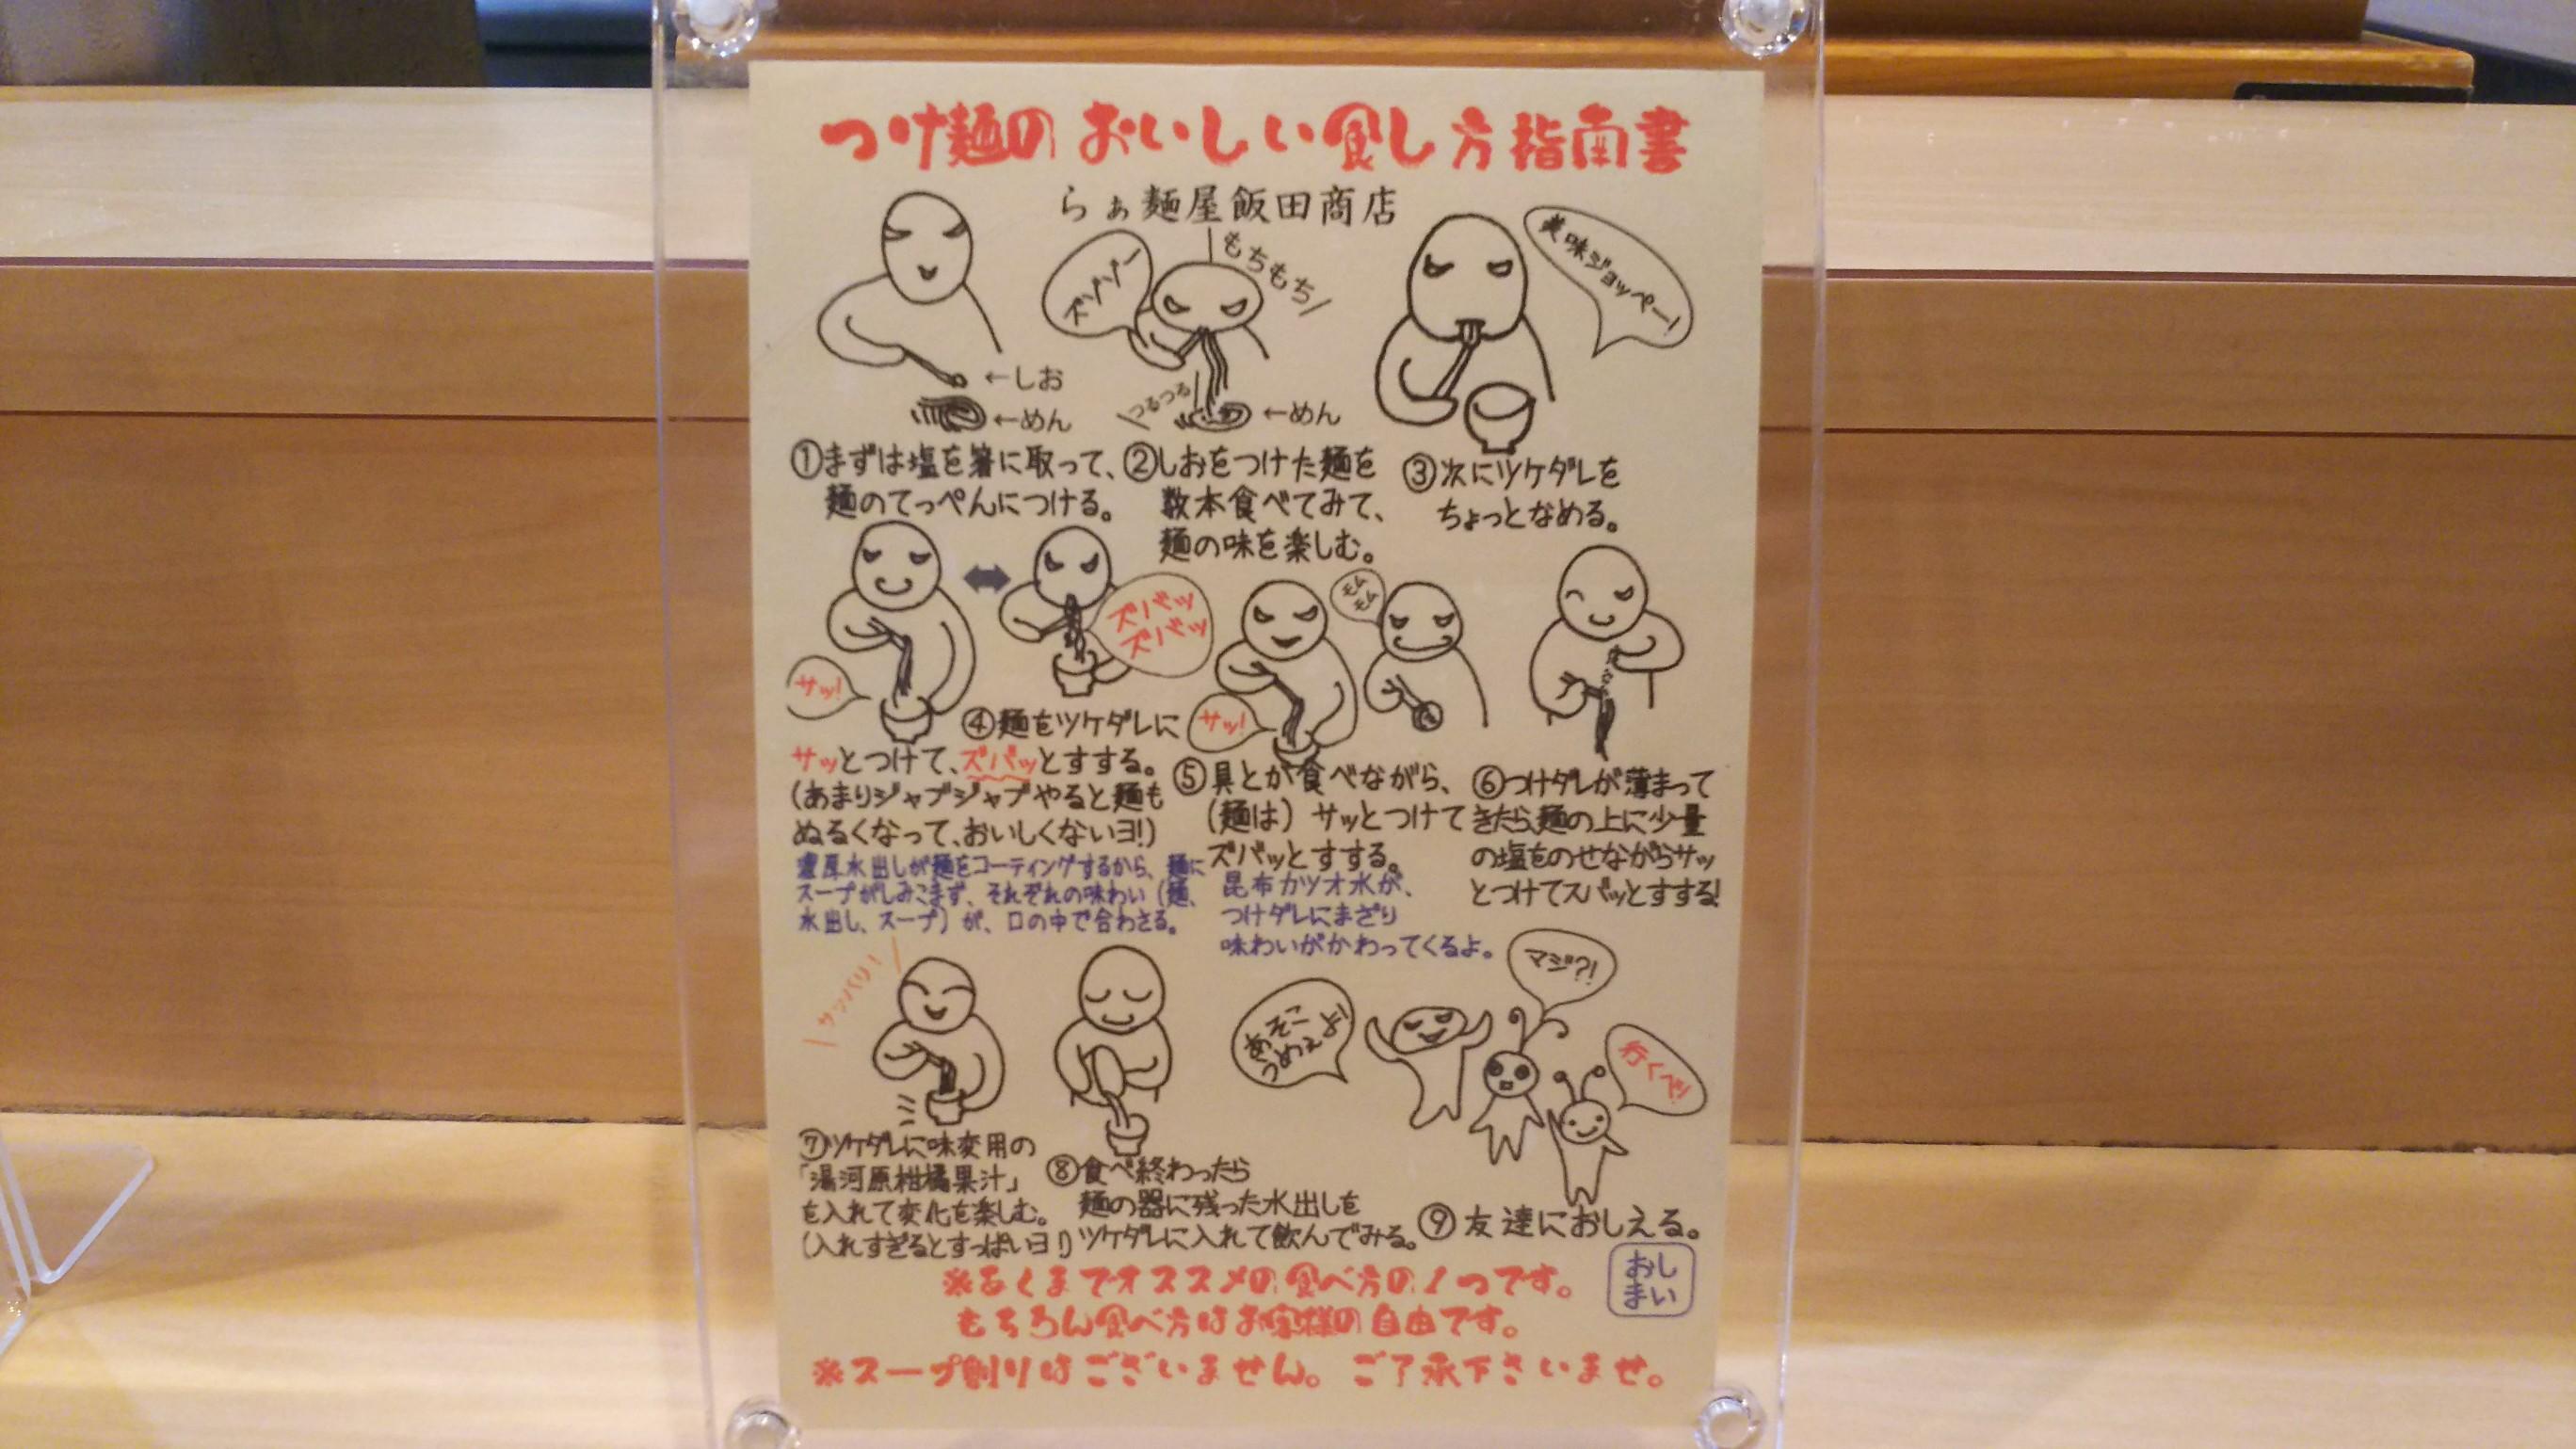 つけ麺のおいしい食し方指南書
らぁ麺屋飯田商店
ズゾゾー
もちもち
美味ジョッペー!
←しお
←めん
つるつる
←めん
①まずは塩を箸に取って、
麺のてっぺんにつける。
②しおをつけた麺を
数本食べてみて、
麺の味を楽しむ。
③次にツケダレを
ちょっとなめる。
サッ!
ズバッ
ズバッ
④麺をツケダレに
サッとつけて、ズバッとすする。
(あまりジャブジャブやると麺も
ぬるくなって、おいしくないヨ!)
濃厚水出しが麺をコーティングするから、麺に
スープがしみこまず、それぞれの味わい(麺、
水出し、スープ)が、口の中で合わさる。
サッ!
モム
モム
⑤具とか食べながら、
(麺は)サッとつけて
ズバッとすする。
昆布カツオ水が、
つけダレにまざり
味わいがかわってくるよ。
⑥つけダレが薄まって
きたら麺の上に少量
の塩をのせながらサッ
とつけてズバッとすする!
サッパリ!
⑦ツケダレに味変用の
「湯河原柑橘果汁」
を入れて変化を楽しむ。
(入れすぎるとすっぱいヨ!)
⑧食べ終わったら
麺の器に残った水出しを
ツケダレに入れて飲んでみる。
あそこ
うめぇよ!
マジ?!
行くべ!
⑨友達におしえる。
おし
まい
※あくまでオススメの食べ方の1つです。
もちろん食べ方はお客様の自由です。
※スープ割りはございません。ご了承下さいませ。